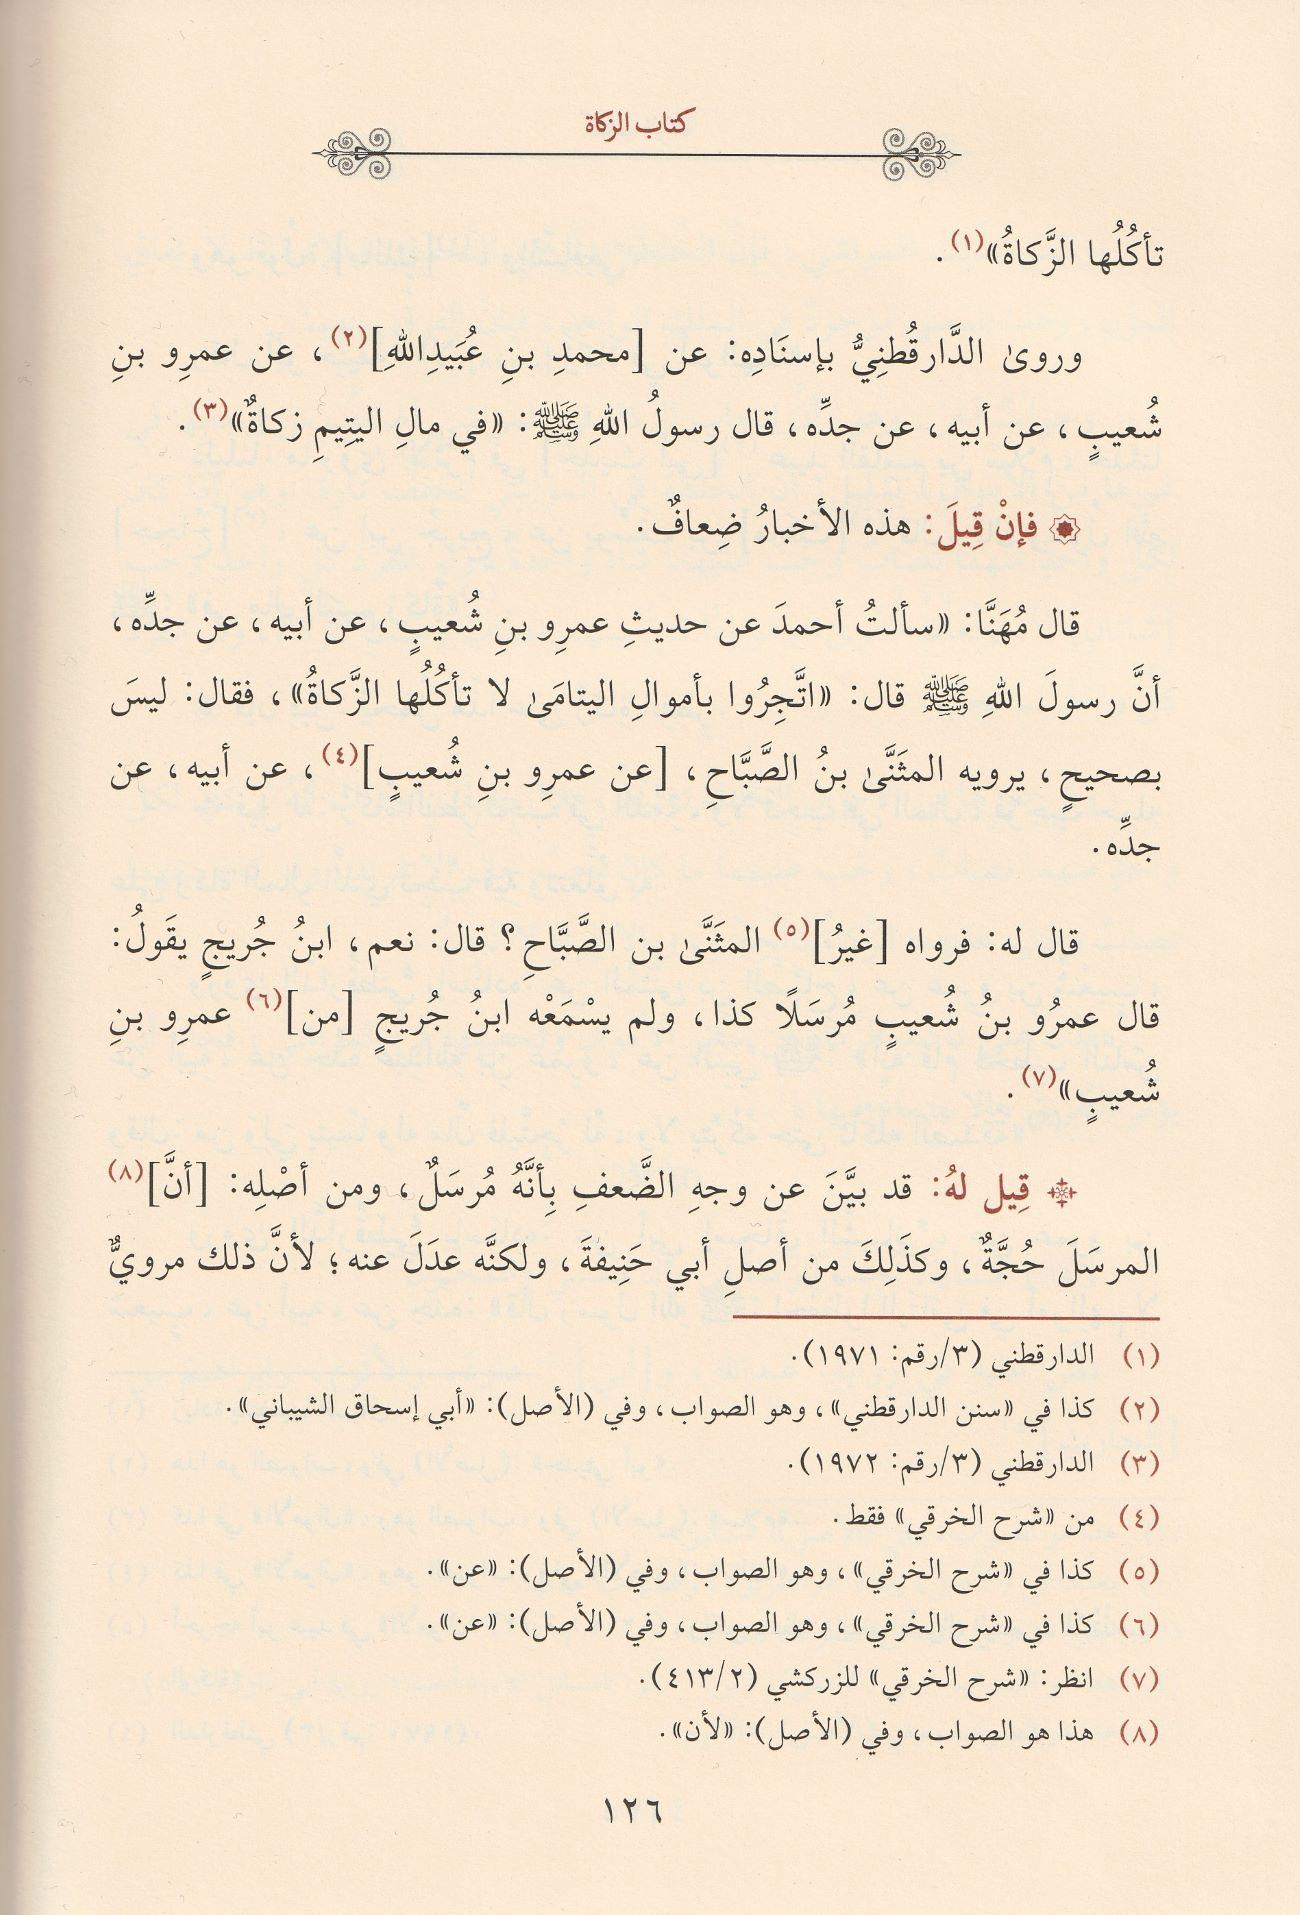 كتاب الزكاة
تأكُلُها الزَّكاةُ»(١).
وروىٰ الدَّارقُطنِيُّ بإسنَادِه: عن [محمدِ بنِ عُبَيدِاللهِ](٢)، عن عمرِو بنِ
شُعيبٍ، عن أبيه، عن جدِّه، قال رسولُ اللهِ ﷺ: «في مالِ اليتِيمِ زكاةٌ»(٣).
فإنْ قِيلَ: هذه الأخبارُ ضِعافٌ.
قال مُهَنَّا: «سألتُ أحمدَ عن حديثِ عمرِو بنِ شُعيبٍ، عن أبيه، عن جدِّه،
أنَّ رسولَ اللهِ ﷺ قال: «اتَّجِرُوا بأموالِ اليتامَىٰ لا تأكُلُها الزَّكاةُ»، فقال: ليسَ
بصحيحٍ، يرويه المثَنَّىٰ بنُ الصَّبَّاحِ، [عن عمرِو بنِ شُعيبٍ](٤)، عن أبيه، عن
جدِّه.
قال له: فرواه [غيرُ](٥) المثَنَّىٰ بن الصَّبَّاحِ؟ قال: نعم، ابنُ جُريجٍ يقَولُ:
قال عمرُو بنُ شُعيبٍ مُرسَلًا كذا، ولم يسْمَعْه ابنُ جُريجٍ [من](٦) عمرِو بنِ
شُعيبٍ»(٧).
قِيل لهُ: قد بيَّنَ عن وجهِ الضَّعفِ بِأنَّهُ مُرسَلٌ، ومن أصْلِه: [أنَّ](٨)
المرسَلَ حُجَّةٌ، وكذَلِكَ من أصلِ أبي حَنِيفةَ، ولكنَّه عدَلَ عنه؛ لأنَّ ذلك مرويٌّ
(١) الدارقطني (٣/رقم: ١٩٧١).
(٢) كذا في «سنن الدارقطني»، وهو الصواب، وفي (الأصل): «أبي إسحاق الشيباني».
(٣) الدارقطني (٣/رقم: ١٩٧٢).
(٤) من «شرح الخرقي» فقط.
(٥) كذا في «شرح الخرقي»، وهو الصواب، وفي (الأصل): «عن».
(٦) كذا في «شرح الخرقي»، وهو الصواب، وفي (الأصل): «عن».
(٧) انظر: «شرح الخرقي» للزركشي (٤١٣/٢).
(٨) هذا هو الصواب، وفي (الأصل): «لأن».
١٢٦